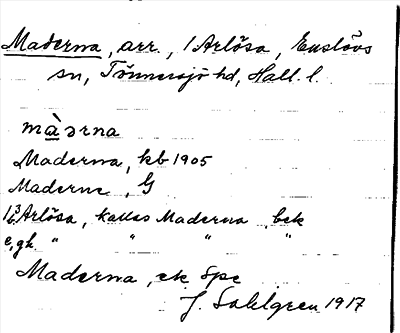 Maderna, arr., i Arlösa, Enslövs
sn, Tönnersjö hd, Hall. l.
màərna
Maderna, kb 1905
Maderne, G
Arlösa, kallas Maderna, bek
e, gh. " " " "
Maderna, ek Spe
J. Sahlgren 1917